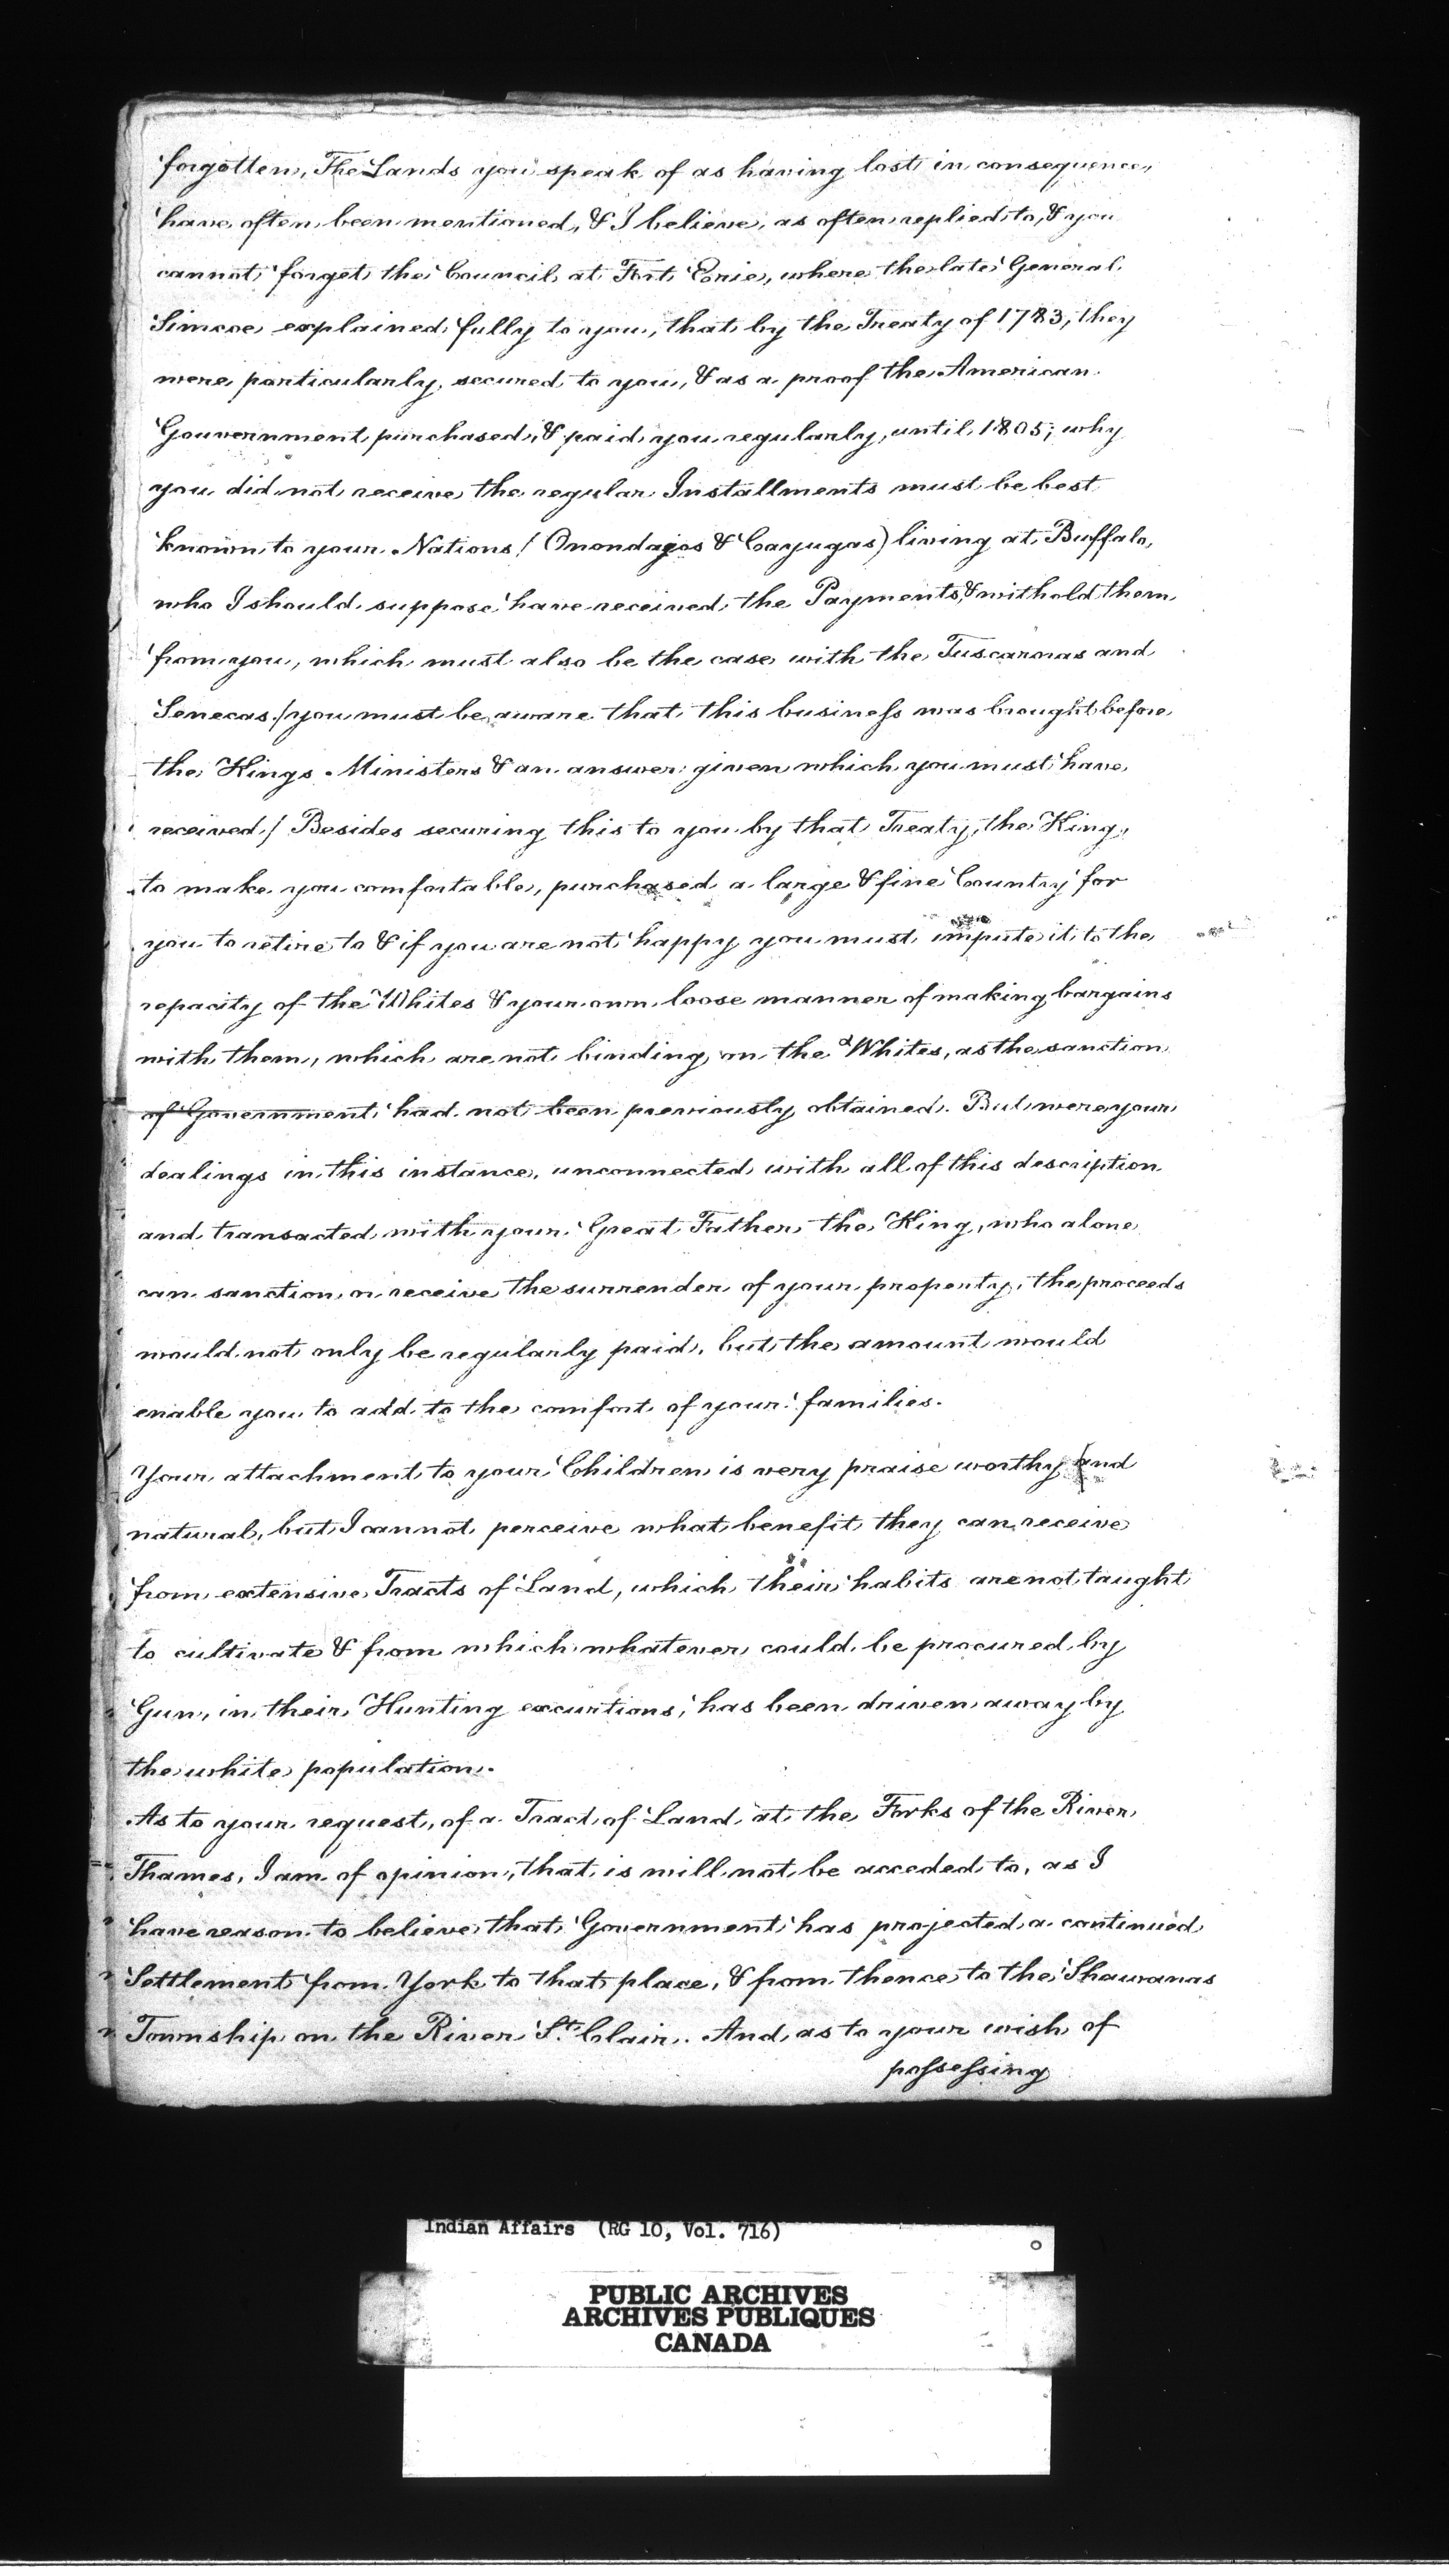 forgotten, The Lands you speak of as having lost in consequence,
have often been mentioned, & I believe, as often replied to, & you
cannot forget the Council at Fort Erie, where the late General
Simcoe explained fully to you, that by the Treaty of 1783, they
were particularly secured to you, & as a proof the American
Gouvernment purchased, & paid you regularly, until 1805; why
you did not receive the regular Installments must be best
known to your Nations / Onondagos & Cayugas) living at Buffalo,
who I should suppose have received the Payments, & withold them
from you, which must also be the case with the Tuscaroras and
Senecas./ you must be aware that this business was brought before
the Kings Ministers & an answer given which you must have
received./ Besides securing this to you by that Treaty, the King,
to make you comfortable, purchased a large & fine Country for
you to retire to & if you are not happy you must impute it to the
repacity of the Whites & your own loose manner of making bargains
with them, which are not binding on the Whites, as the sanction
of Government had not been previously obtained. But were your
dealings in this instance, unconnected with all of this description
and transacted with your Great Father the King, who alone
can sanction or receive the surrender of your property, the proceeds
would not only be regularly paid, but the amount would
enable you to add to the comfort of your families.
Your attachment to your Children is very praise worthy and
natural, but I cannot perceive what benefit they can receive
from extensive Tracts of Land, which their habits are not taught
to cultivate & from which whatever could be procured by
Gun, in their Hunting excurtions, has been driven away by
the white population.
As to your request, of a Tract of Land at the Forks of the River
Thames, I am of opinion, that is will not be acceded to, as I
have reason to believe that Government has projected a continued
Settlement from York to that place, & from thence to the Shawanas
Township on the River St. Clair. And as to your wish of
possessing
Indian Affairs (RG 10, Vol. 716)
PUBLIC ARCHIVES
ARCHIVES PUBLIQUES
CANADA